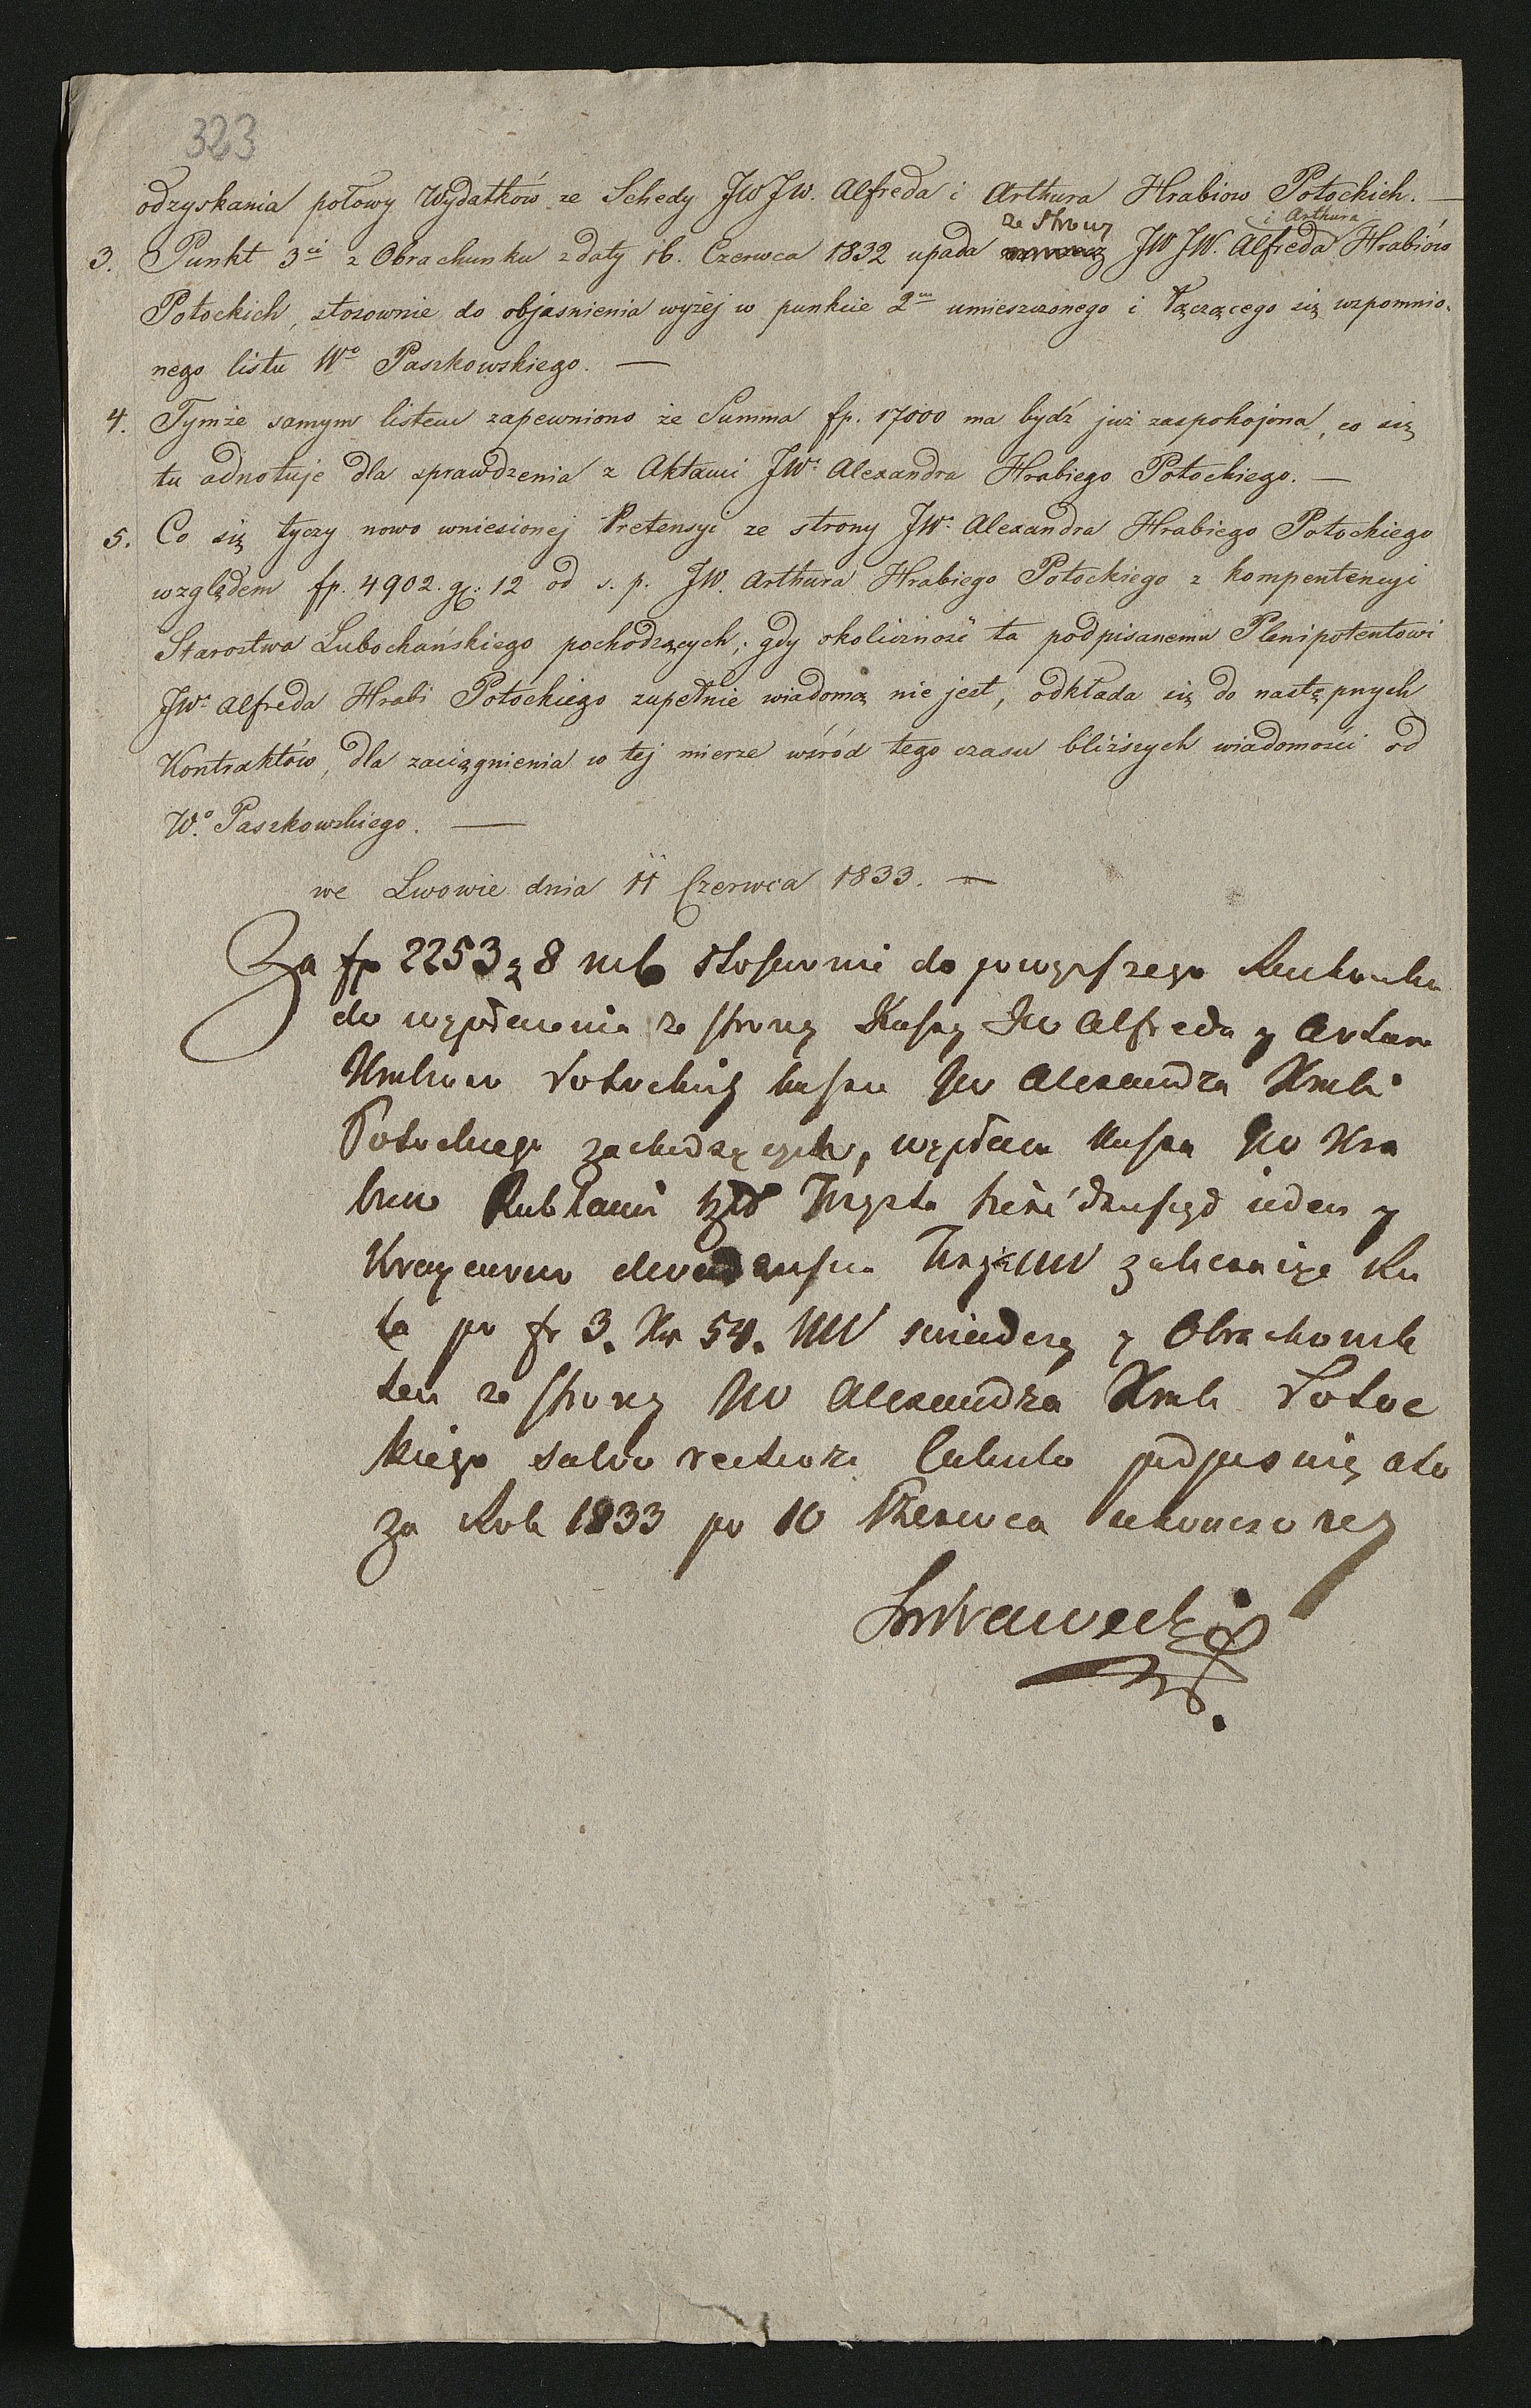 323
odzyskania połowy Wydatków ze Schedy JW JW. Alfreda i Arthura Hrabiow Potockich. —
ze Strony i Arthura
3. Punkt 3ci z Obrachunku z daty 16. Czerwca 1832 upada JW JW. Alfreda Hrabiów
Potockich, stosownie do objasnienia wyżej w punkcie 2m umieszczonego i łączącego się wzpomnio-
nego listu Wo Paszkowskiego. —
4. Tymże samym listem zapewniono że Summa fp. 17000 ma bydź już zaspokojona, co się
tu adnotuje dla sprawdzenia z Aktami JWo Alexandra Hrabiego Potockiego. —
5. Co się tyczy nowo wniesionej Pretensyi ze strony JWo Alexandra Hrabiego Potockiego
względem fp. 4902. g: 12 od s. p. JW. Arthura Hrabiego Potockiego z kompentencyi
Starostwa Lubochańskiego pochodzących; gdy okoliczność ta podpisanemu Plenipotentowi
JWo Alfreda Hrabi Potockiego zupełnie wiadomą nie jest, odkłada się do następnych
Kontraktów, dla zaciągnienia w tej mierze wśród tego czasu bliższych wiadomości od
Wo. Paszkowskiego. —
we Lwowie dnia 11 Czerwca 1833. —
Za fp 2253 g 8 stosownie do powyższego Rachunku
do wypłacenia ze strony Kassy JW Alfreda y Artura
Hrabiow Potockich kassie JW Alexandra Hrabi
Potockiego zachodzących, wypłaca Kassa JW Hra
biow Rublami Trzysta sześćdziesiąd ieden y
Kraycarow dwadziescia
po fr 3. Kr 54. y Obrachunek
ten ze strony JW Alexandra Hrabi Potoc
kiego salvo calculo podpisuię ato
za Rok 1833 po 10 Czerwca